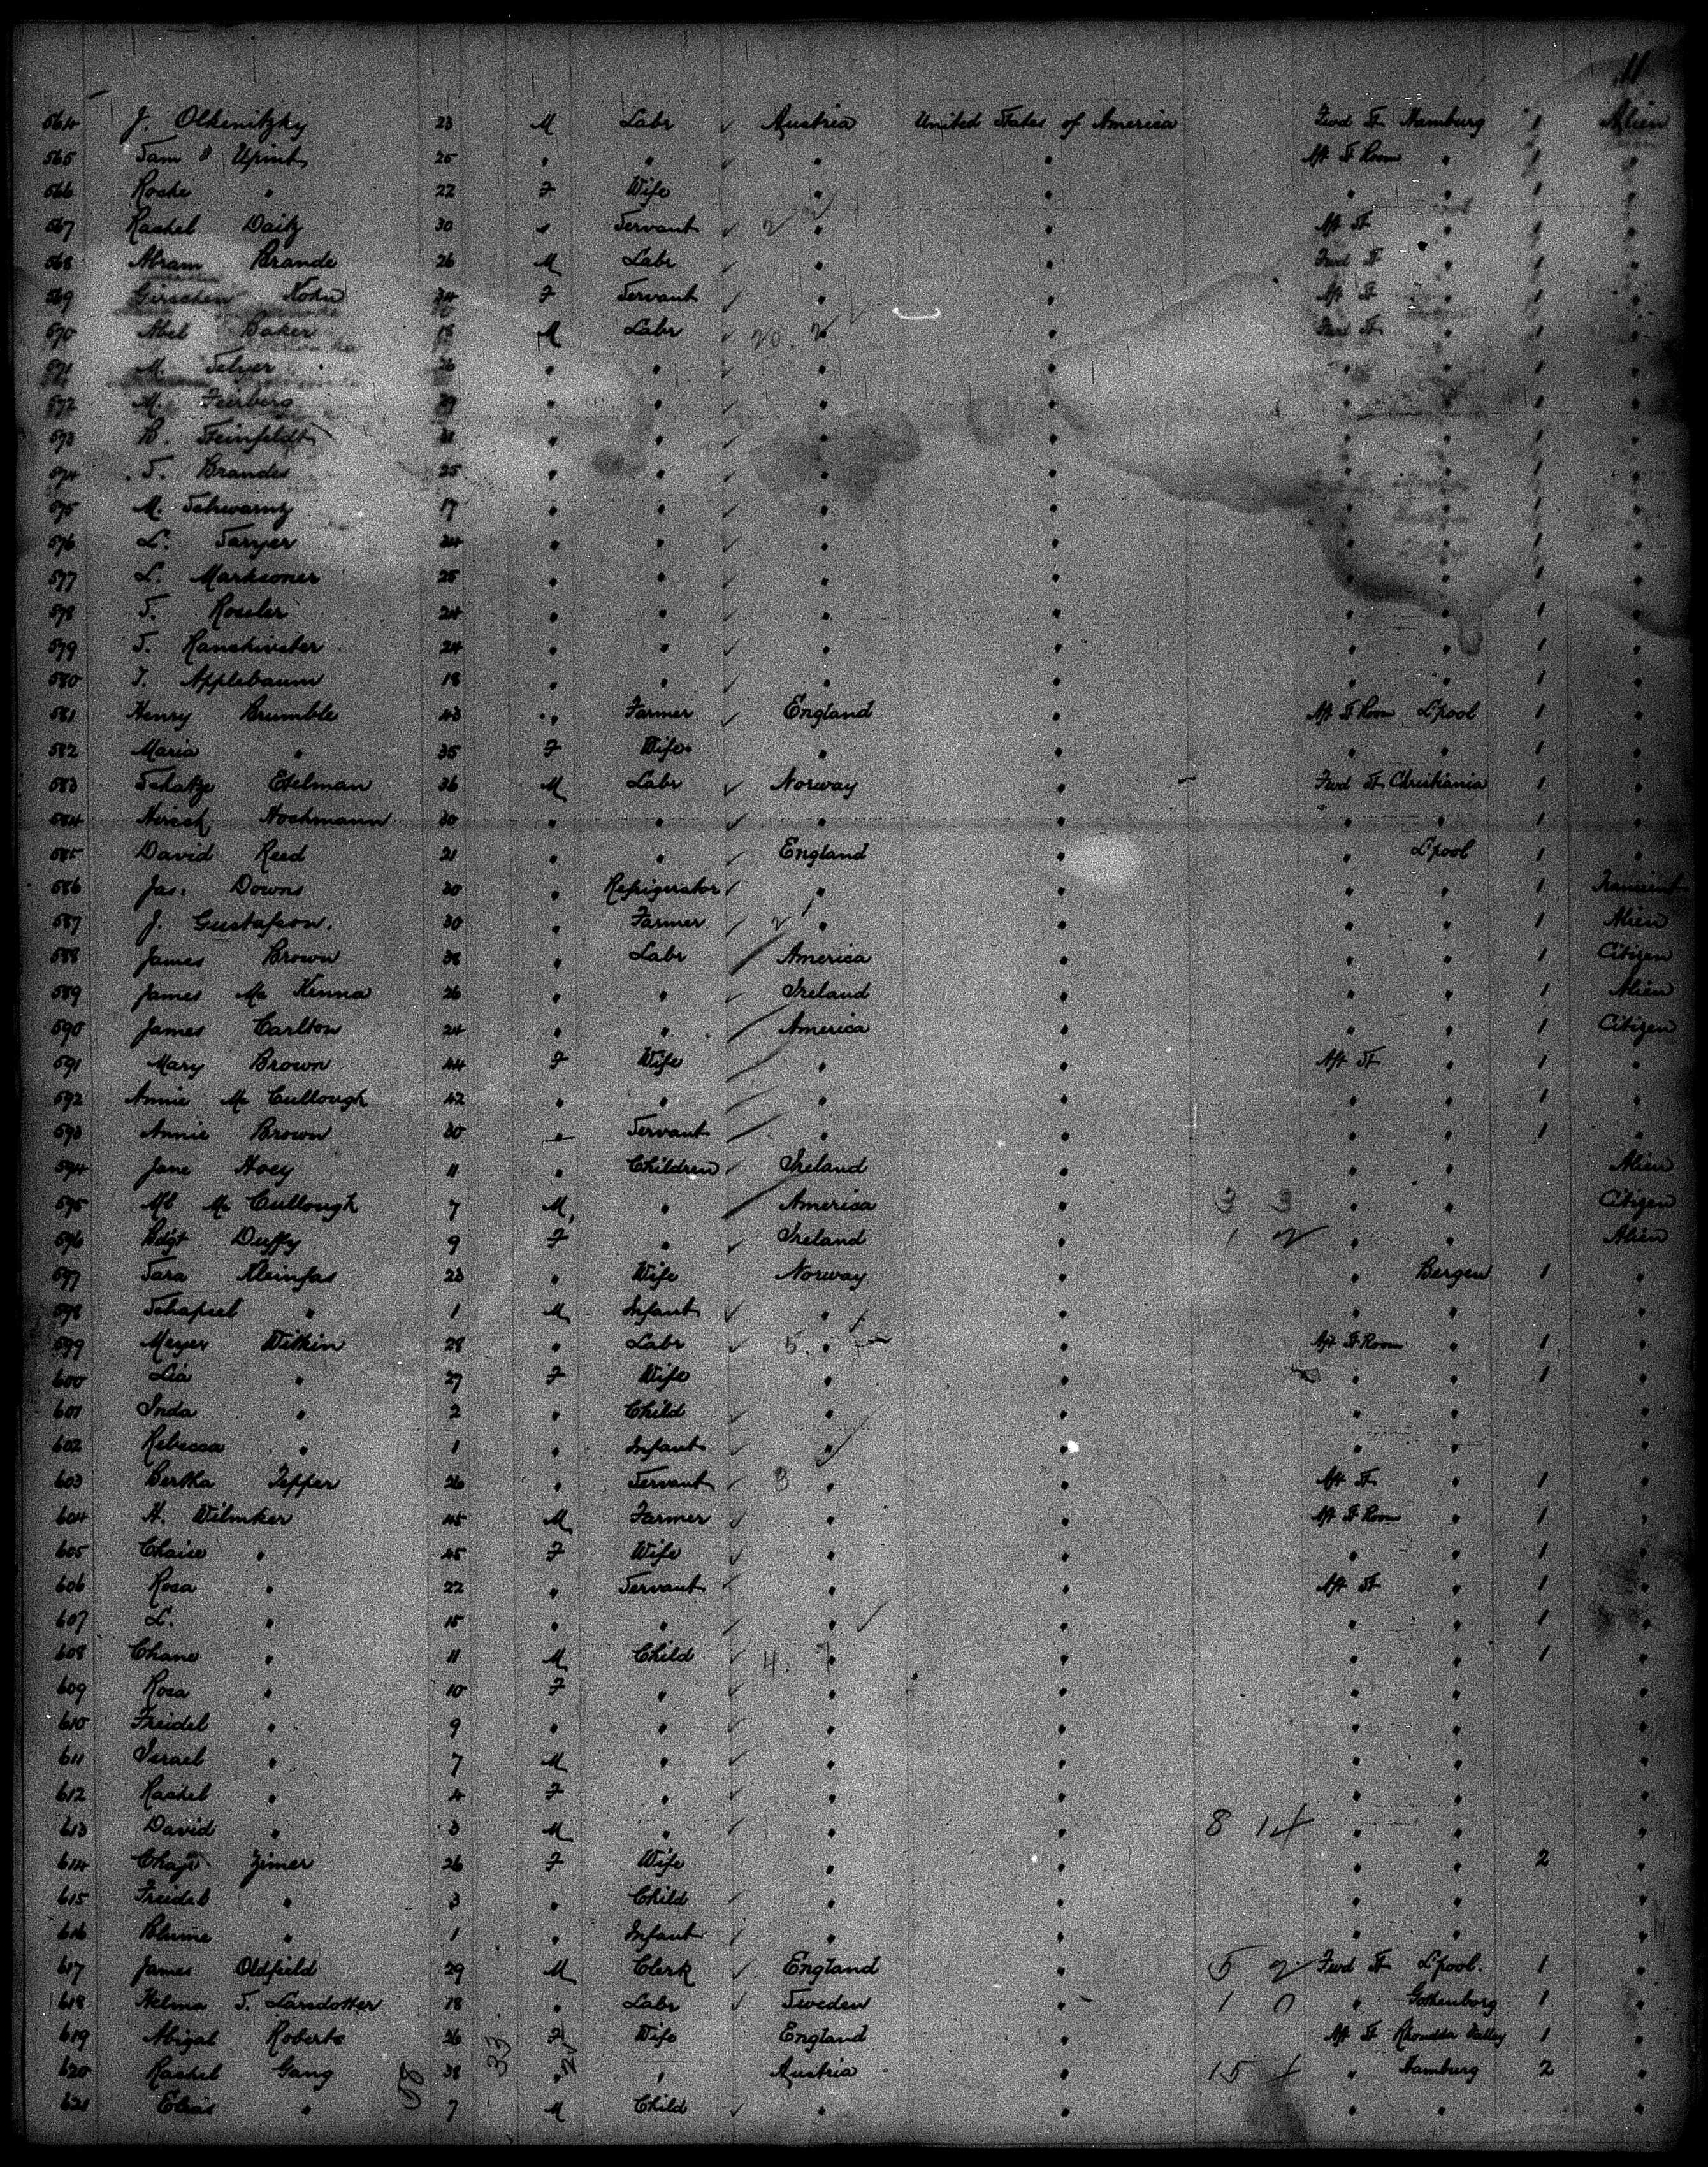 11
564 J. Olkenitzky 23 M Labr ✓ Austria United States of America Fwd St Hamburg 1 Alien
565 Sam Upint 25 " " ✓ " " Aft St Room " 1 "
566 Roske " 22 F Wife " " " " 1 "
567 Rachel Daitz 30 " Servant ✓ 2 " " Aft St " 1 "
568 Abram Brande 26 M Labr ✓ " " Fwd St " 1 "
569 Kohn 34 F Servant ✓ " " Aft St " 1 "
570 Abel Baker 18 M Labr ✓ 20 " " Fwd St " 1 "
571 M. 26 " " ✓ " " " " 1 "
572 M. Feirberg 39 " " ✓ " " " " 1 "
573 B. Steinfeldt 21 " " ✓ " " " " 1 "
574 S. Brandes 25 " " ✓ " " " " 1 "
575 M. Schwarnz 17 " " ✓ " " " " 1 "
576 L. Saryer 24 " " ✓ " " " " 1 "
577 L. Marksoner 25 " " ✓ " " " " 1 "
578 S. Rossler 24 " " ✓ " " " " 1 "
579 S. 24 " " ✓ " " " " 1 "
580 J. Applebaum 18 " " ✓ " " " " 1 "
581 Henry Brumble 43 " Farmer ✓ England " Aft St Room L'pool 1 "
582 Maria " 35 F Wife " " " " 1 "
583 Schatze Edelman 36 M Labr ✓ Norway " Fwd St Christiania 1 "
584 Hirsch Hochmann 30 " " ✓ " " " " 1 "
585 David Reed 21 " " ✓ England " " L'pool 1 "
586 Jas: Downs 30 " Refrigerator ✓ " " " " 1 Transient
587 J. Gustafson. 30 " Farmer ✓ 2 " " " " 1 Alien
588 James Brown 38 " Labr America " " " 1 Citizen
589 James Mc Kenna 26 " " ✓ Ireland " " " 1 Alien
590 James Carlton 24 " " America " " " 1 Citizen
591 Mary Brown 44 F Wife " " Aft St " 1 "
592 Annie Mc Cullough 42 " " " " " " 1 "
593 Annie Brown 30 " Servant " " " " 1 "
594 Jane Hoey 11 " Children ✓ Ireland " " " Alien
595 Ml Mc Cullough 7 M " America " 3 3 " " Citizen
596 Bdgt Duffy 9 F " ✓ Ireland " 1 2 " " Alien
597 Sara Kleinfas 23 " Wife Norway " " Bergen 1 "
598 Schapsel " 1 M Infant ✓ " " " " "
599 Meyer Witkin 28 " Labr ✓ 5 " " Aft St Room " 1 "
600 Lia " 27 F Wife " " " " 1 "
601 Inda " 2 " Child ✓ " " " " "
602 Rebecca " 1 " Infant ✓ " " " " "
603 Bertha Tepper 26 " Servant ✓ 3 " " Aft St " 1 "
604 H. Wilmker 45 M Farmer ✓ " " Aft St Room " 1 "
605 Chaise " 45 F Wife ✓ " " " " 1 "
606 Rosa " 22 " Servant ✓ " " Aft St " 1 "
607 L. " 15 " " ✓ " " " " 1 "
608 Chane " 11 M Child ✓ 4. 7 " " " 1 "
609 Rosa " 10 F " ✓ " " " " "
610 Freidel " 9 " " ✓ " " " " "
611 Israel " 7 M " ✓ " " " " "
612 Rachel " 4 F " ✓ " " " " "
613 David " 3 M " ✓ " " 8 14 " " "
614 Zimer 26 F Wife " " " " 2 "
615 Freidel " 3 " Child ✓ " " " " "
616 Blume " 1 " Infant ✓ " " " " "
617 James Oldfield 29 M Clerk ✓ England " 5 2 Fwd St L'pool. 1 "
618 Helma S. Larsdotter 18 " Labr ✓ Sweden " 1 0 " Gothenborg 1 "
619 Abigal Roberts 26 F Wife England " Aft St Rhondda Valley 1 "
620 Rachel Gang 38 " " Austria " 15 " Hamburg 2 "
621 Elias " 7 M Child ✓ " " " " "
33